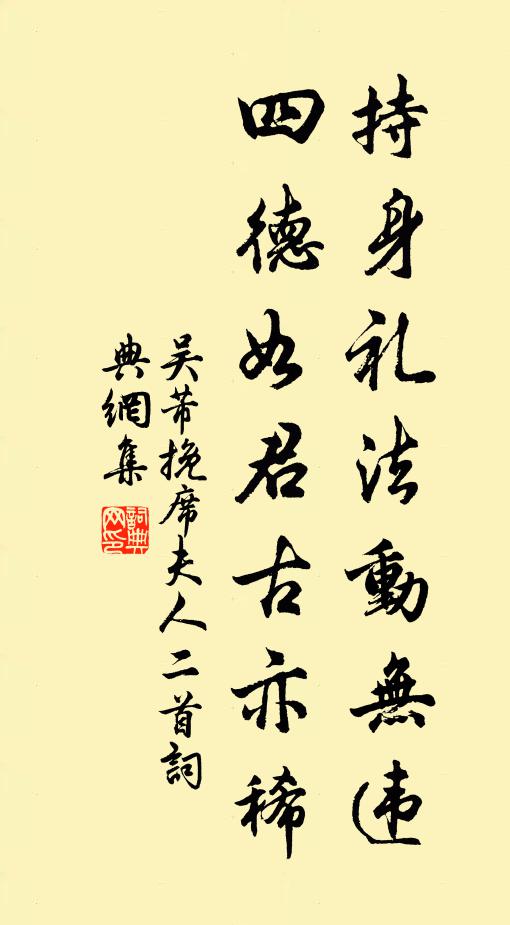 持身礼法動無违
四德如君古亦稀
吴芾挽席夫人二首詞
典網集
詞典网印